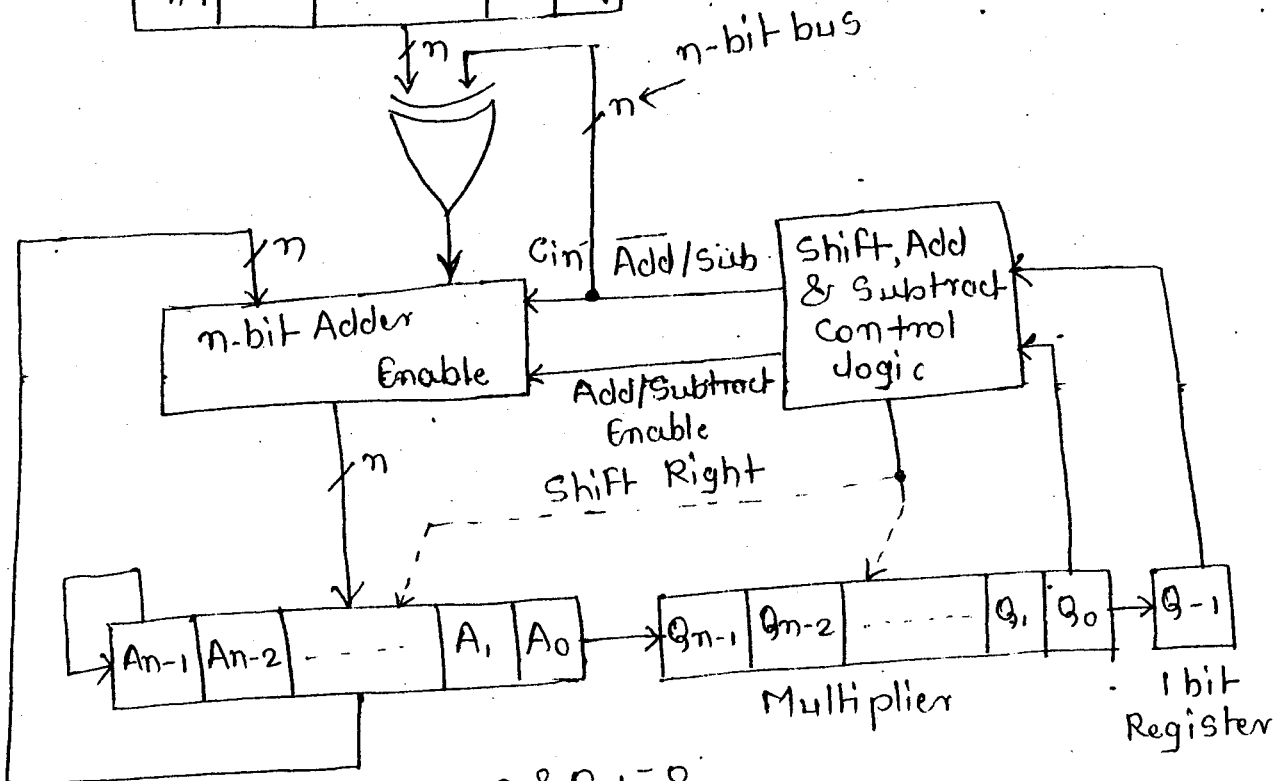 n
n-bit bus
n
n
Cin Add/Sub
Shift, Add
& Subtract
Control
logic
n-bit Adder
Enable
Add/Subtract
Enable
n
Shift Right
An-1 An-2 ----- A1 A0
Qn-1 Qn-2 ------- Q1 Q0
Q-1
Multiplier
1 bit
Register